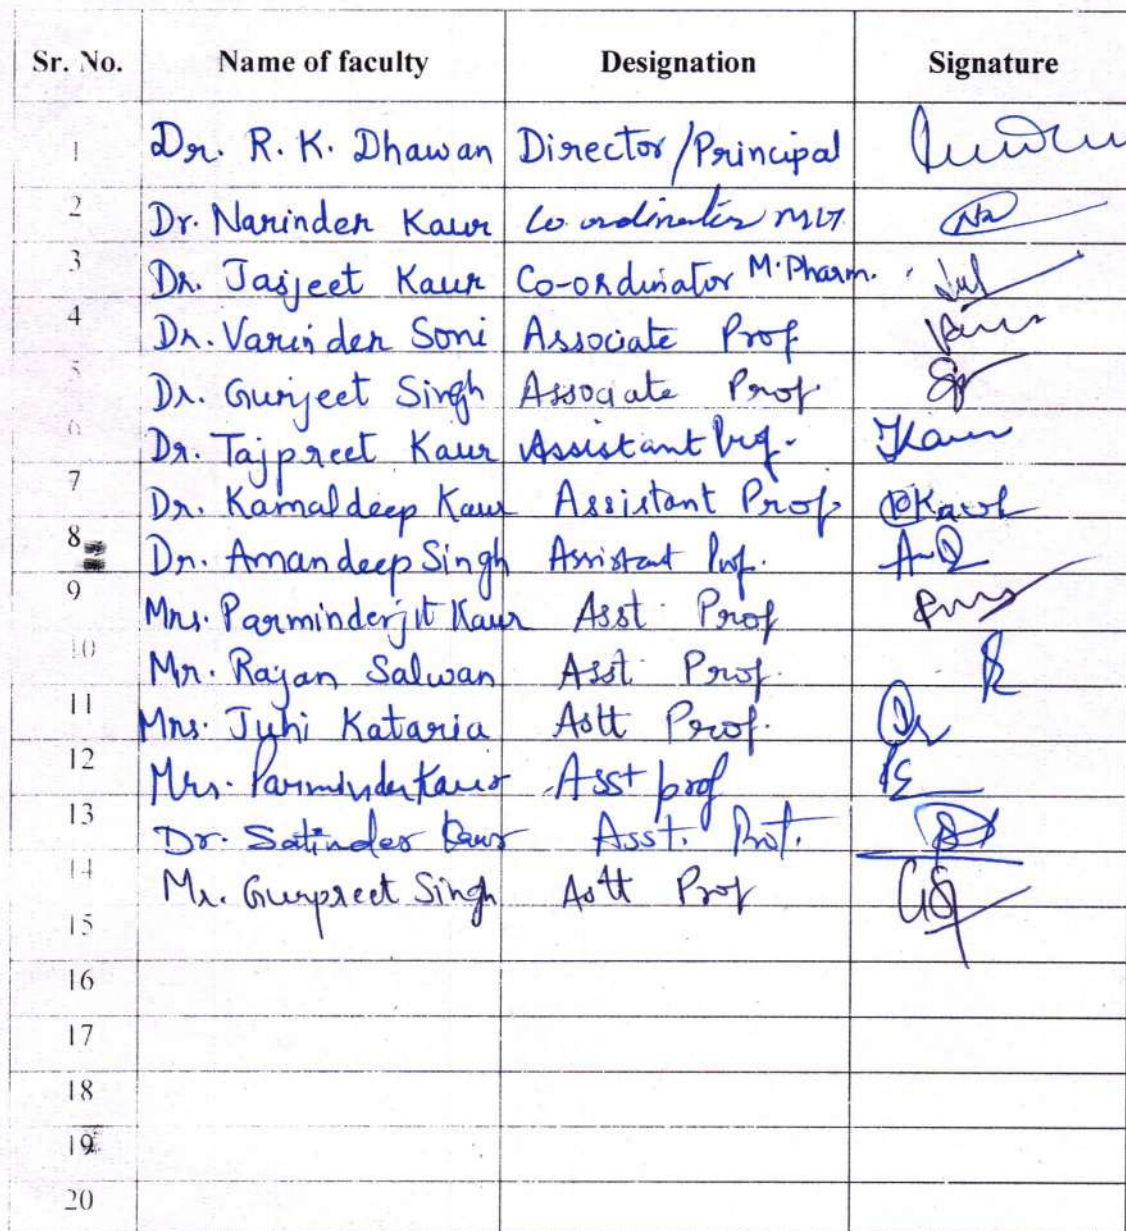 Sr. No. Name of faculty Designation Signature
1 Dr. R. K. Dhawan Director/Principal
2 Dr. Narinder Kaur Co ordinator
3 Dr. Jasjeet Kaur Co-ordinator M. Pharm.
4 Dr. Varinder Soni Associate Prof
5 Dr. Gurjeet Singh Associate Prof
6 Dr. Tajpreet Kaur Assistant Prof. TKaur
7 Dr. Kamaldeep Kaur Assistant Prof. Kaur
8 Dr. Amandeep Singh Assistant Prof.
9 Mrs. Parminderjit Kaur Asst Prof
10 Mr. Rajan Salwan Asst Prof.
11 Mrs. Juhi Kataria Astt Prof.
12 Mrs. Parminder Kaur Asst prof
13 Dr. Satinder Kaur Asst. Prof.
14 Mr. Gurpreet Singh Astt Prof
15
16
17
18
19
20